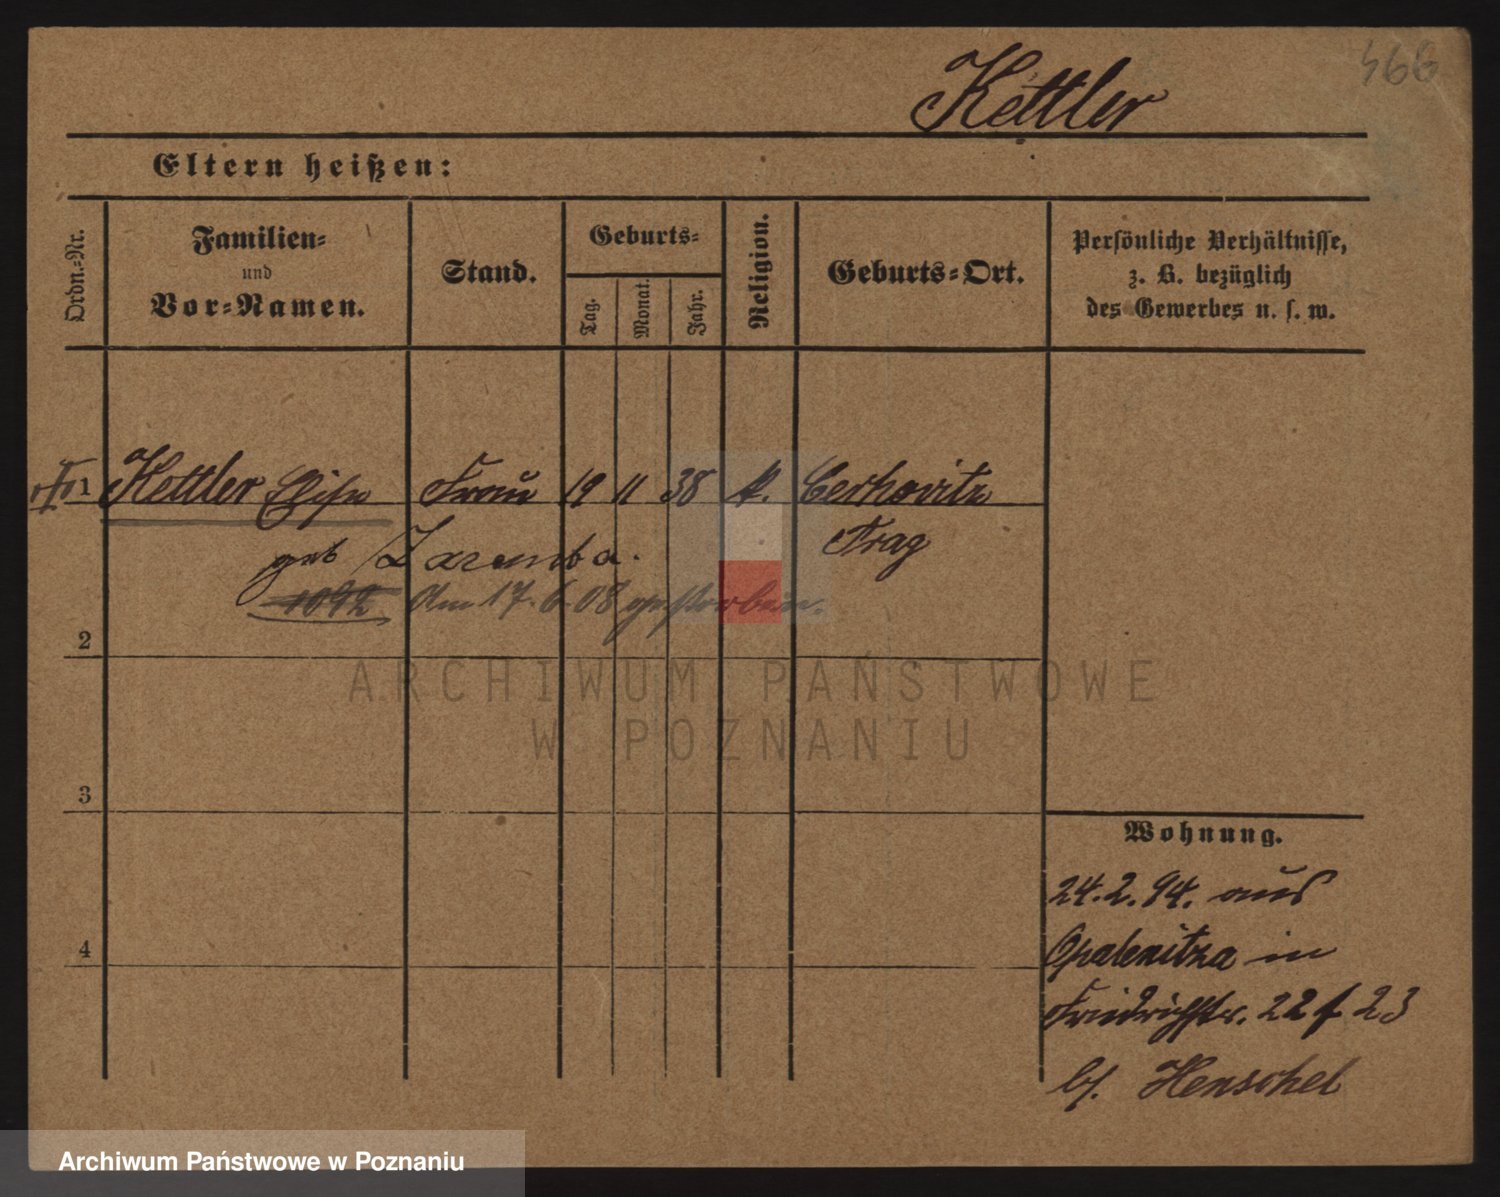 466
Kettler
Eltern heißen:
Ordn.-Nr.
Familien-
und
Vor-Namen.
Stand.
Geburts-
Tag.
Monat.
Jahr.
Religion.
Geburts-Ort.
Persönliche Verhältnisse,
z. B. bezüglich
des Gewerbes u. s. w.
1 Kettler Elise Frau 19 11 38 k. Cerkovitz
geb Zaremba. Prag
1092 Am 17. 6. 08 gestorben.
2
ARCHIWUM PAŃSTWOWE
W POZNANIU
3
Wohnung.
24. 2. 94. aus
4
Opalenitza in
Friedrichstr. 22 f 23
b/. Henschel
Archiwum Państwowe w Poznaniu